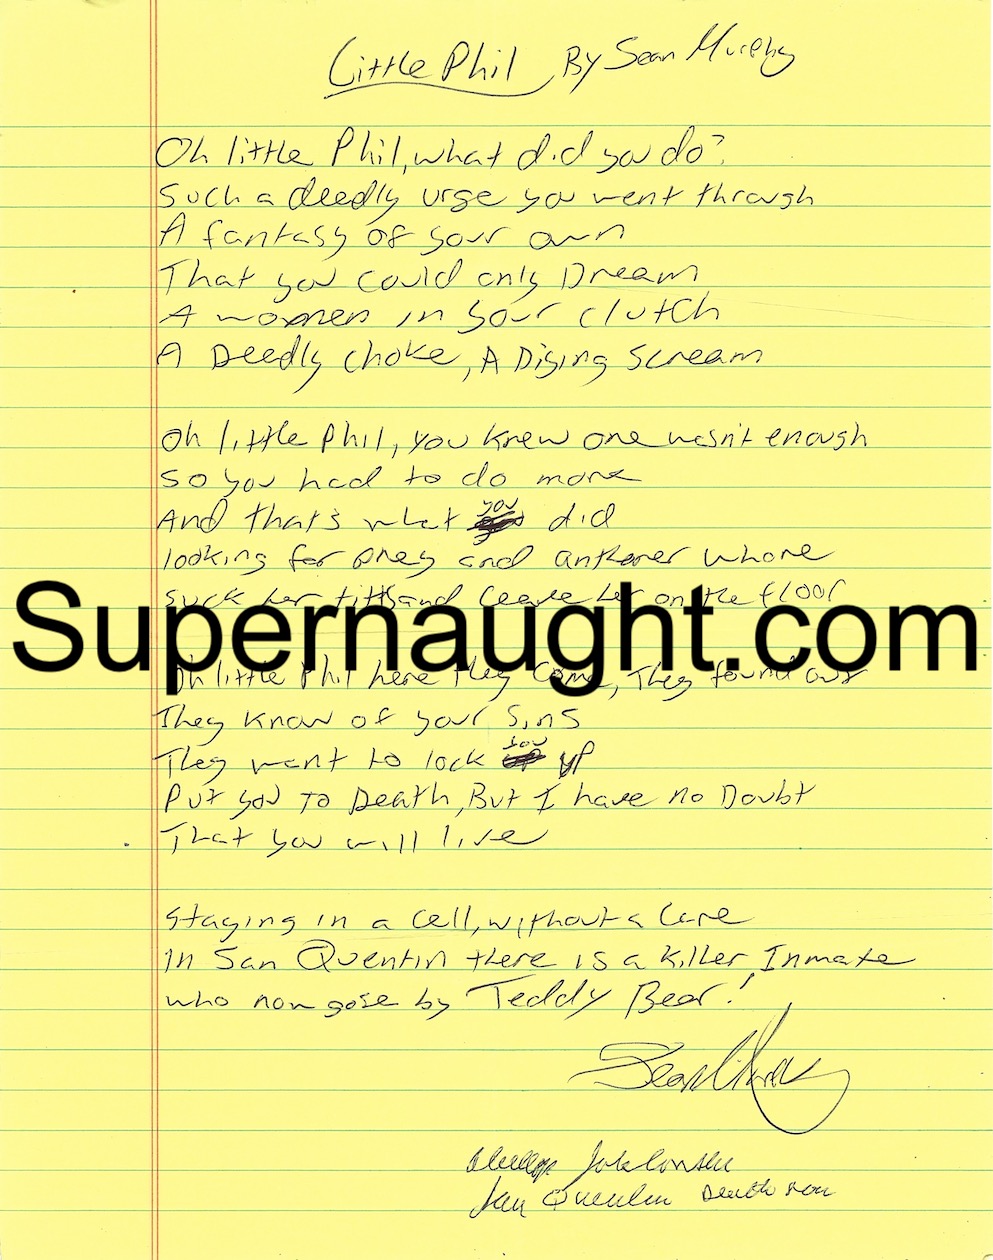 Little Phil By Sean Murphy
Oh little Phil, what did you do?
Such a deedly urge you went through
A fantasy of your own
That you could only Dream
A women in your clutch
A Deedly choke, A Diying scream
Oh little Phil, you knew one wasn't enough
So you had to do more
And that's what you did
looking for prey and anthoner whore
suck her titts and leave her on the floor
Supernaught.com
Oh little Phil here they come, They found out
They know of your sins
They want to lock you up
Put you To Death, But I have no Doubt
That you will live
Staying in a cell, without a Care
In San Quentin there is a Killer Inmate
who now gose by Teddy Bear!
Sean Murphy
Phillip Jablonski
San Quentin Death row